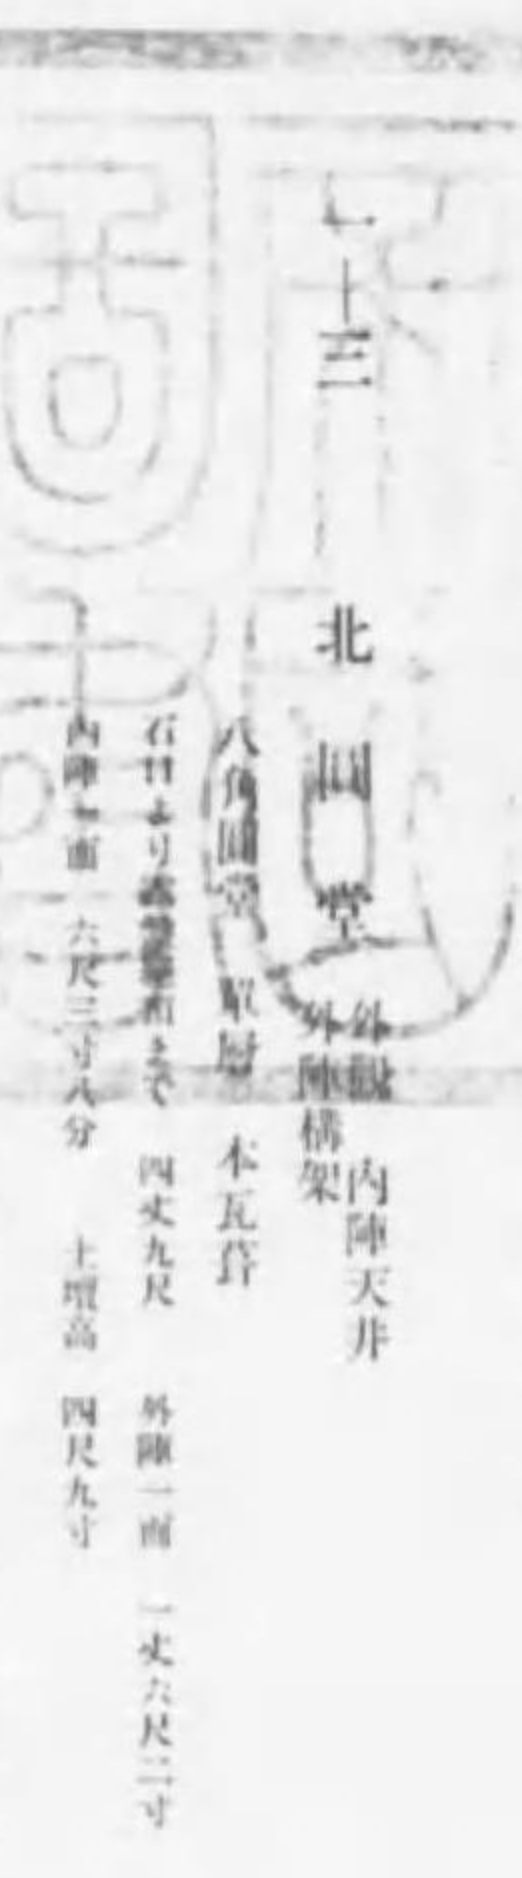 北圓堂
外觀 內陣天井
外陣構架
八角圓堂 單層 本瓦葺
より まで 四丈九尺 外陣一面 一丈六尺二寸
內陣一面 六尺三寸八分 土壇高 四尺九寸